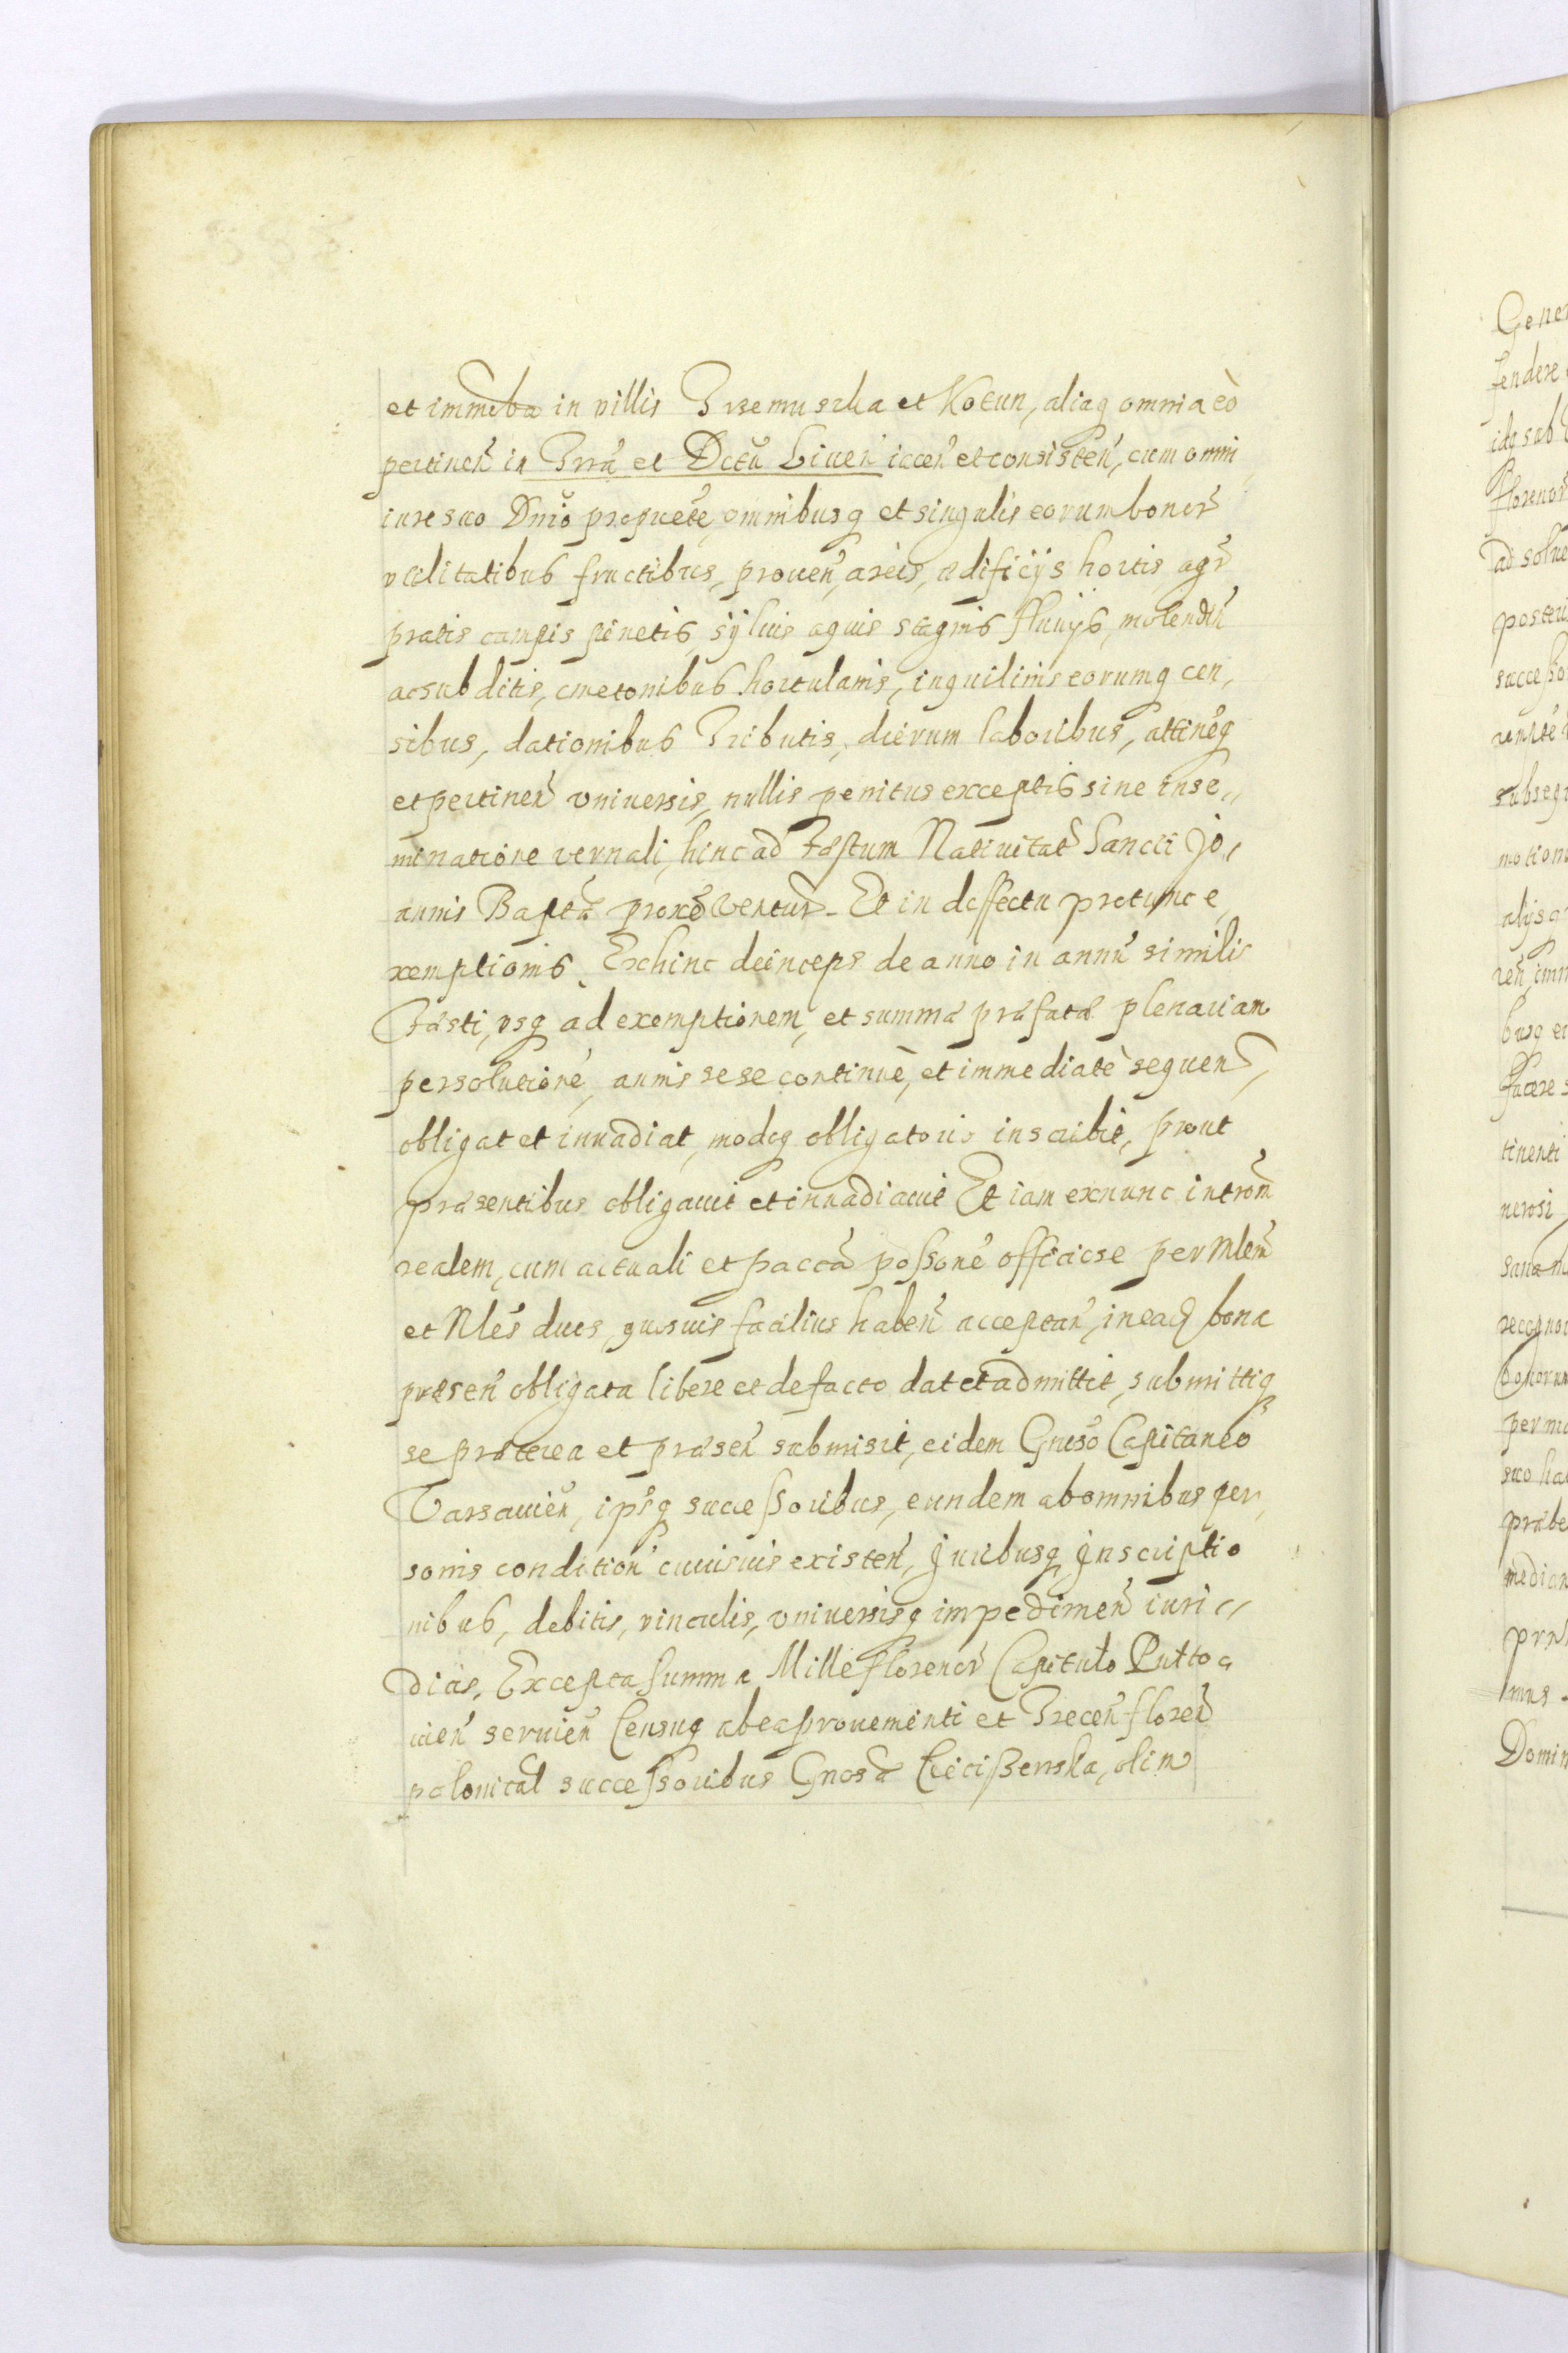 et immoba in villis Trzemuszka et Kotun, aliaq omnia eò
pertineñ in Trrá et Dctũ Liueń iaceń et consisteń, cum omni
iure suo Dnio propriete, omnibusq et singulis eorum bonor
vtilitatibus fructibus, proueń, areis, ædificijs hortis, agr
pratis campis pinetis, syluis aquis stagnis fluuijs, molendiń
ac subditis, cmetonibus hortulanis, inquilinis eorumq cen,
sibus, dationibus Tributis, dierum laboribus, attineńq
et pertineń vniuersis, nullis penitus exceptis sine inse„
minatione vernali, hinc ad Fæstum Natiuitat Sancti Jo„
annis Baptã proxẽ ventur. Et in deffectu pro tunc e,
xemptionis. Exhinc deinceps de anno in annũ similis
Fæsti, vsq ad exemptionem, et summæ præfatæ plenariam
persolutioné, annis sese continuè, et immediatè sequen,
obligat et inuadiat, modoq obligatorio inscribit, prout
præsentibus obligauit et inuadiauit Et iam ex nunc introm
realem, cum actuali et paccã possoné officiose per Mlem
et Nles duos, quosuis facilius habeń acceptań, in eaq bona
præseń obligata libere et de facto dat et admittit, submittiq
se præterea et præseń submisit, eidem Gnoso Capitaneo
Varsauień, ipsq successoribus, eundem ab omnibus per,
sonis condition cuiusuis existeń, Juribusq Jnscriptio
nibus, debitis, vinculis, vniuersisq impedimeń iuri„
dicis. Excepta summa Mille florenor Capitulo Pulto„
uień seruień Censuq ab ea proueniénti et Treceń floreń
polonical successoribus Gnosæ Cieciszewska, olim
Gener
tendere
ide sub
florenor
ad solue
poster
successo
subseq
notion
alijsq
reń imm
busq et
facere s
tinenti
nerosi
recogno
bonorum
per m
suo ha
præbe
median
Domin